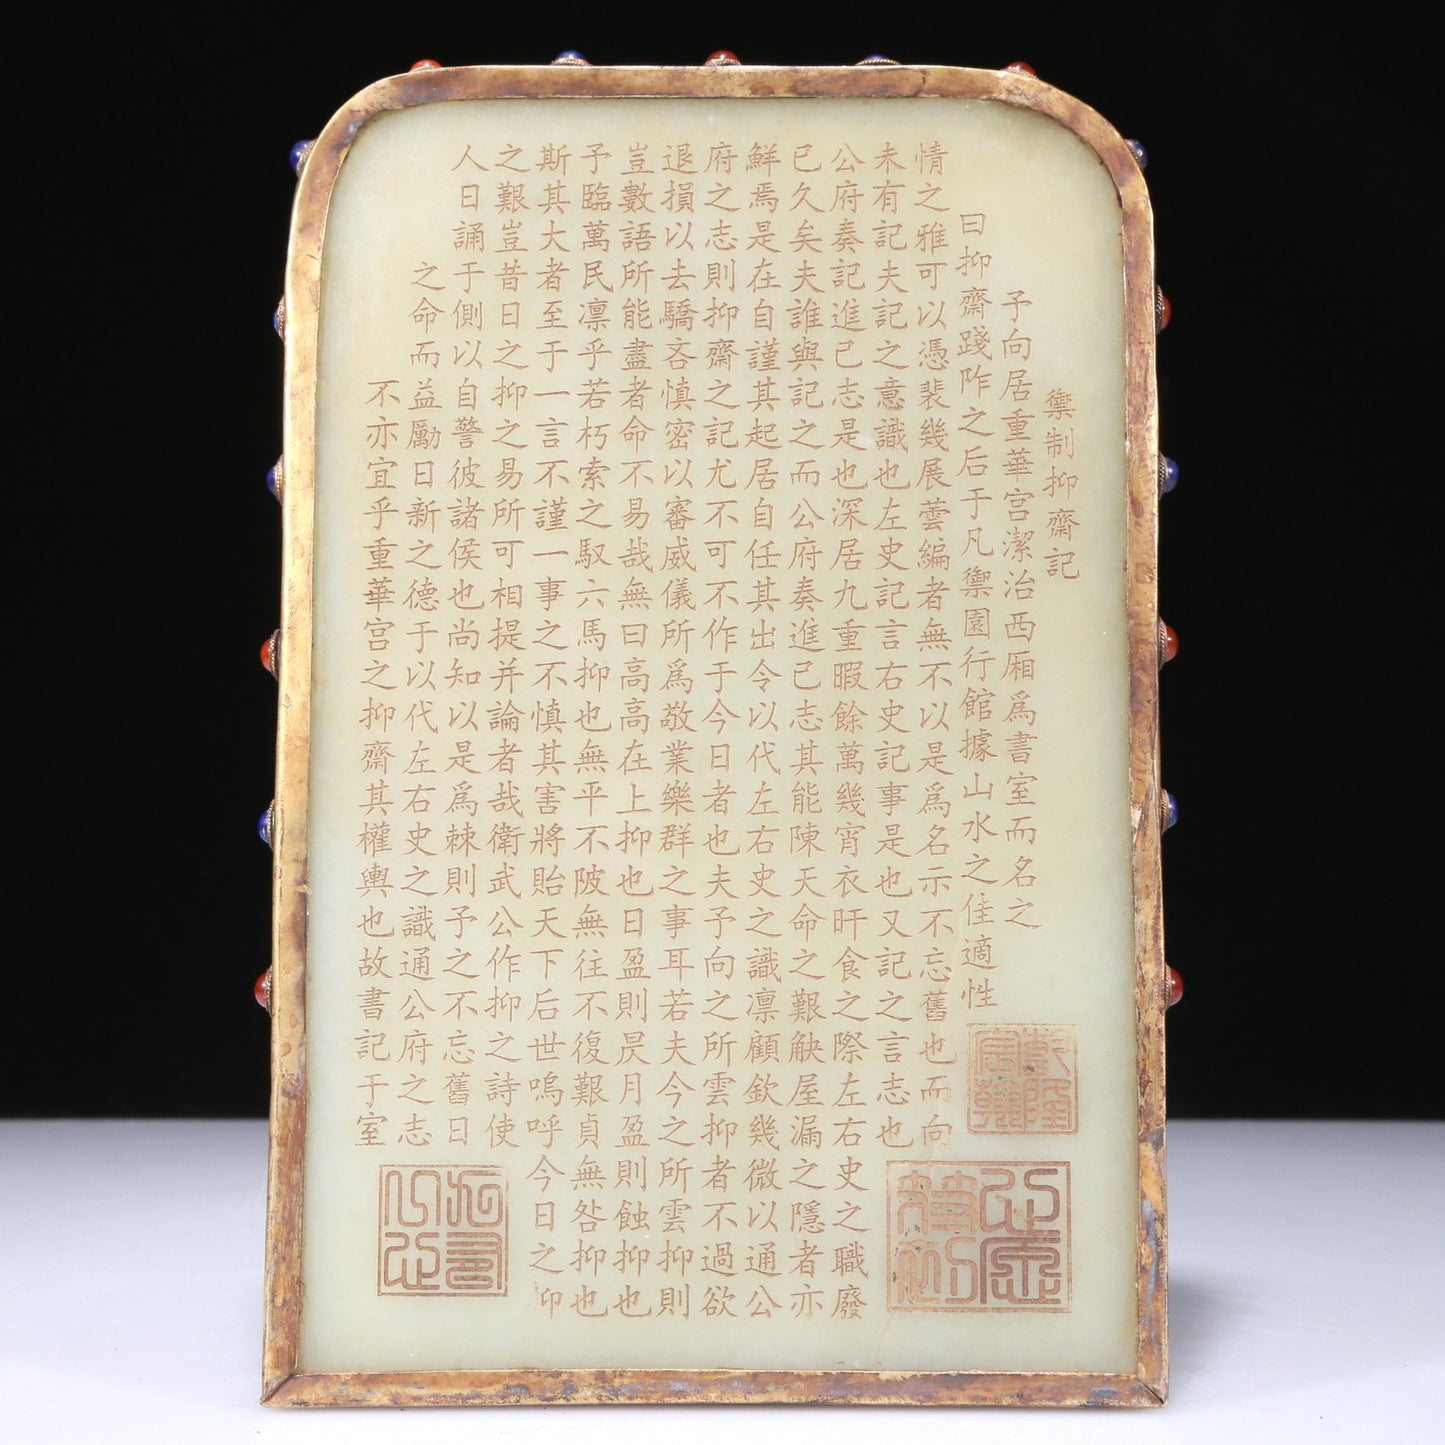 禦制抑齋記
予向居重華宫潔治西厢爲書室而名之
曰抑齋踐阼之后于凡禦園行館據山水之佳適性
情之雅可以憑裴幾展蕓編者無不以是爲名示不忘舊也而向
未有記夫記之意識也左史記言右史記事是也又記之言志也
公府奏記進己志是也深居九重暇餘萬幾宵衣旰食之際左右史之職廢
已久矣夫誰與記之而公府奏進已志其能陳天命之艱觖屋漏之隱者亦
鮮焉是在自謹其起居自任其出令以代左右史之識凛顧欽幾微以通公
府之志則抑齋之記尤不可不作于今日者也夫予向之所雲抑者不過欲
退損以去驕吝慎密以審威儀所爲敬業樂群之事耳若夫今之所雲抑則
豈數語所能盡者命不易哉無曰高高在上抑也日盈則昃月盈則蝕抑也
予臨萬民凛乎若朽索之馭六馬抑也無平不陂無往不復艱貞無咎抑也
斯其大者至于一言不謹一事之不慎其害將貽天下后世嗚呼今日之抑
之艱豈昔日之抑之易所可相提并論者哉衛武公作抑之詩使
人日誦于側以自警彼諸侯也尚知以是爲棘則予之不忘舊日
之命而益勵日新之德于以代左右史之識通公府之志
不亦宜乎重華宫之抑齋其權輿也故書記于室
乾隆宸翰